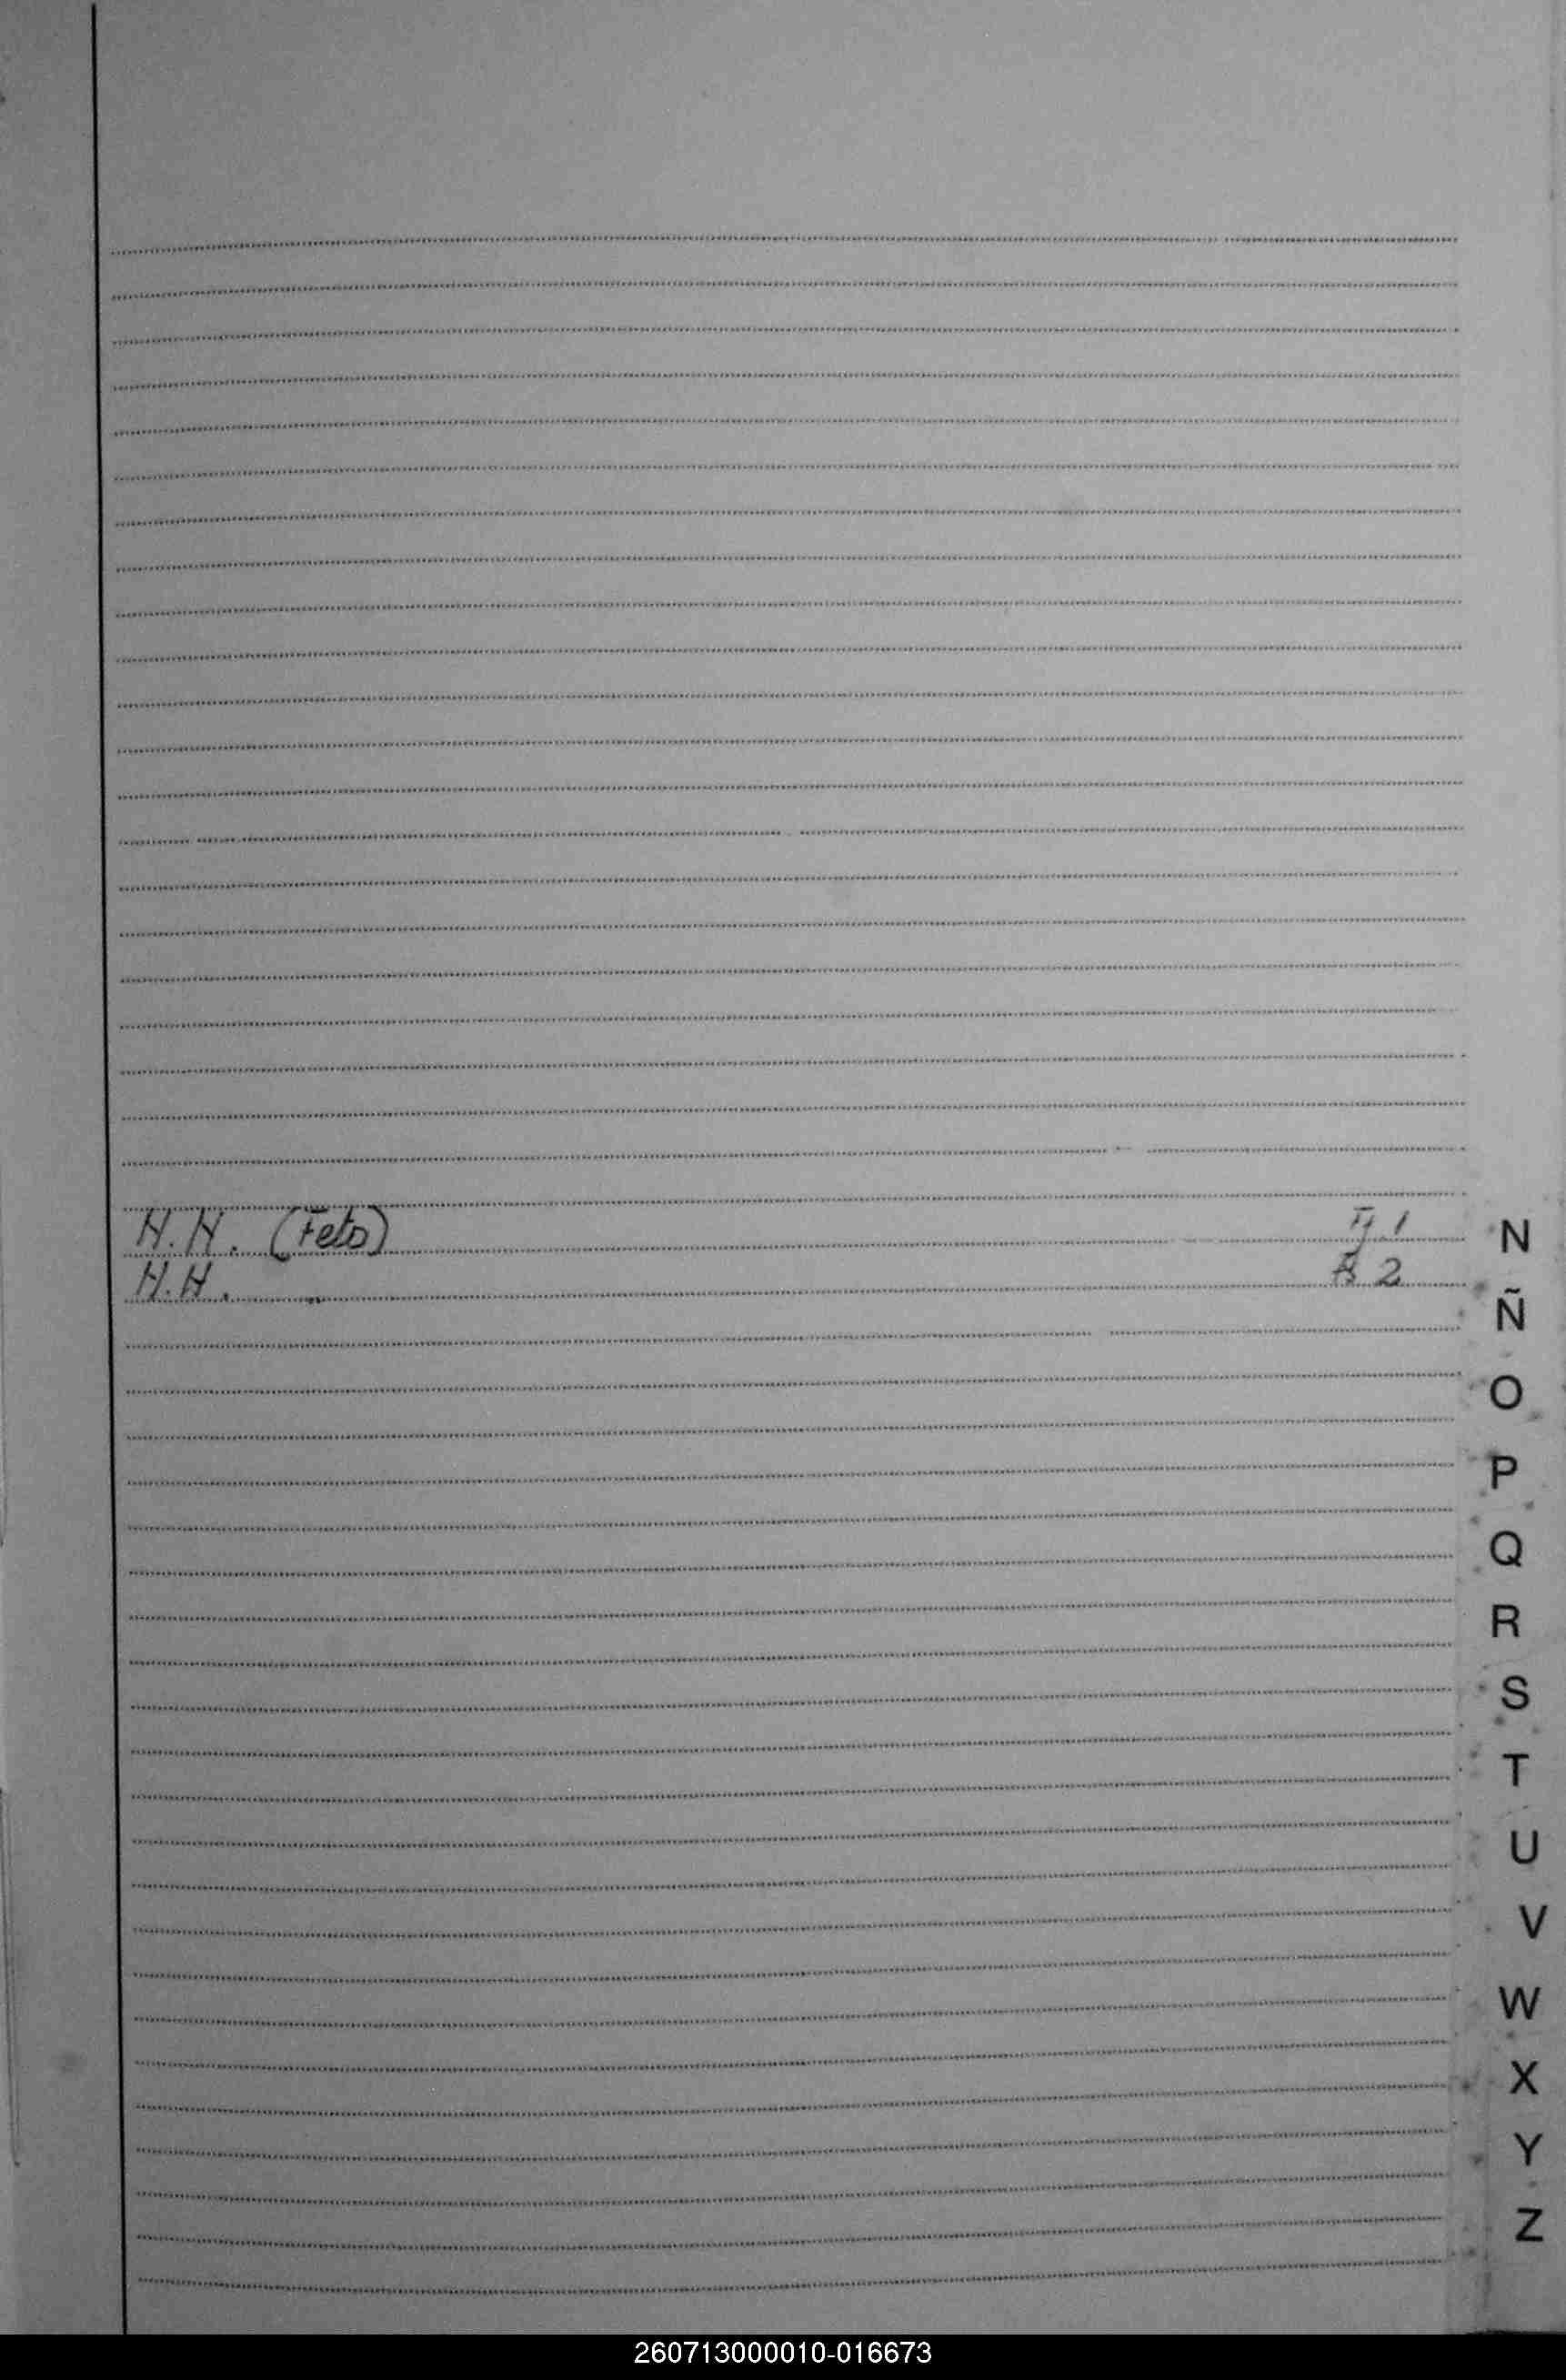 N.N. (Feto) 1
N.N. 2
N
Ñ
O
P
Q
R
S
T
U
V
W
X
Y
Z
260713000010-016673